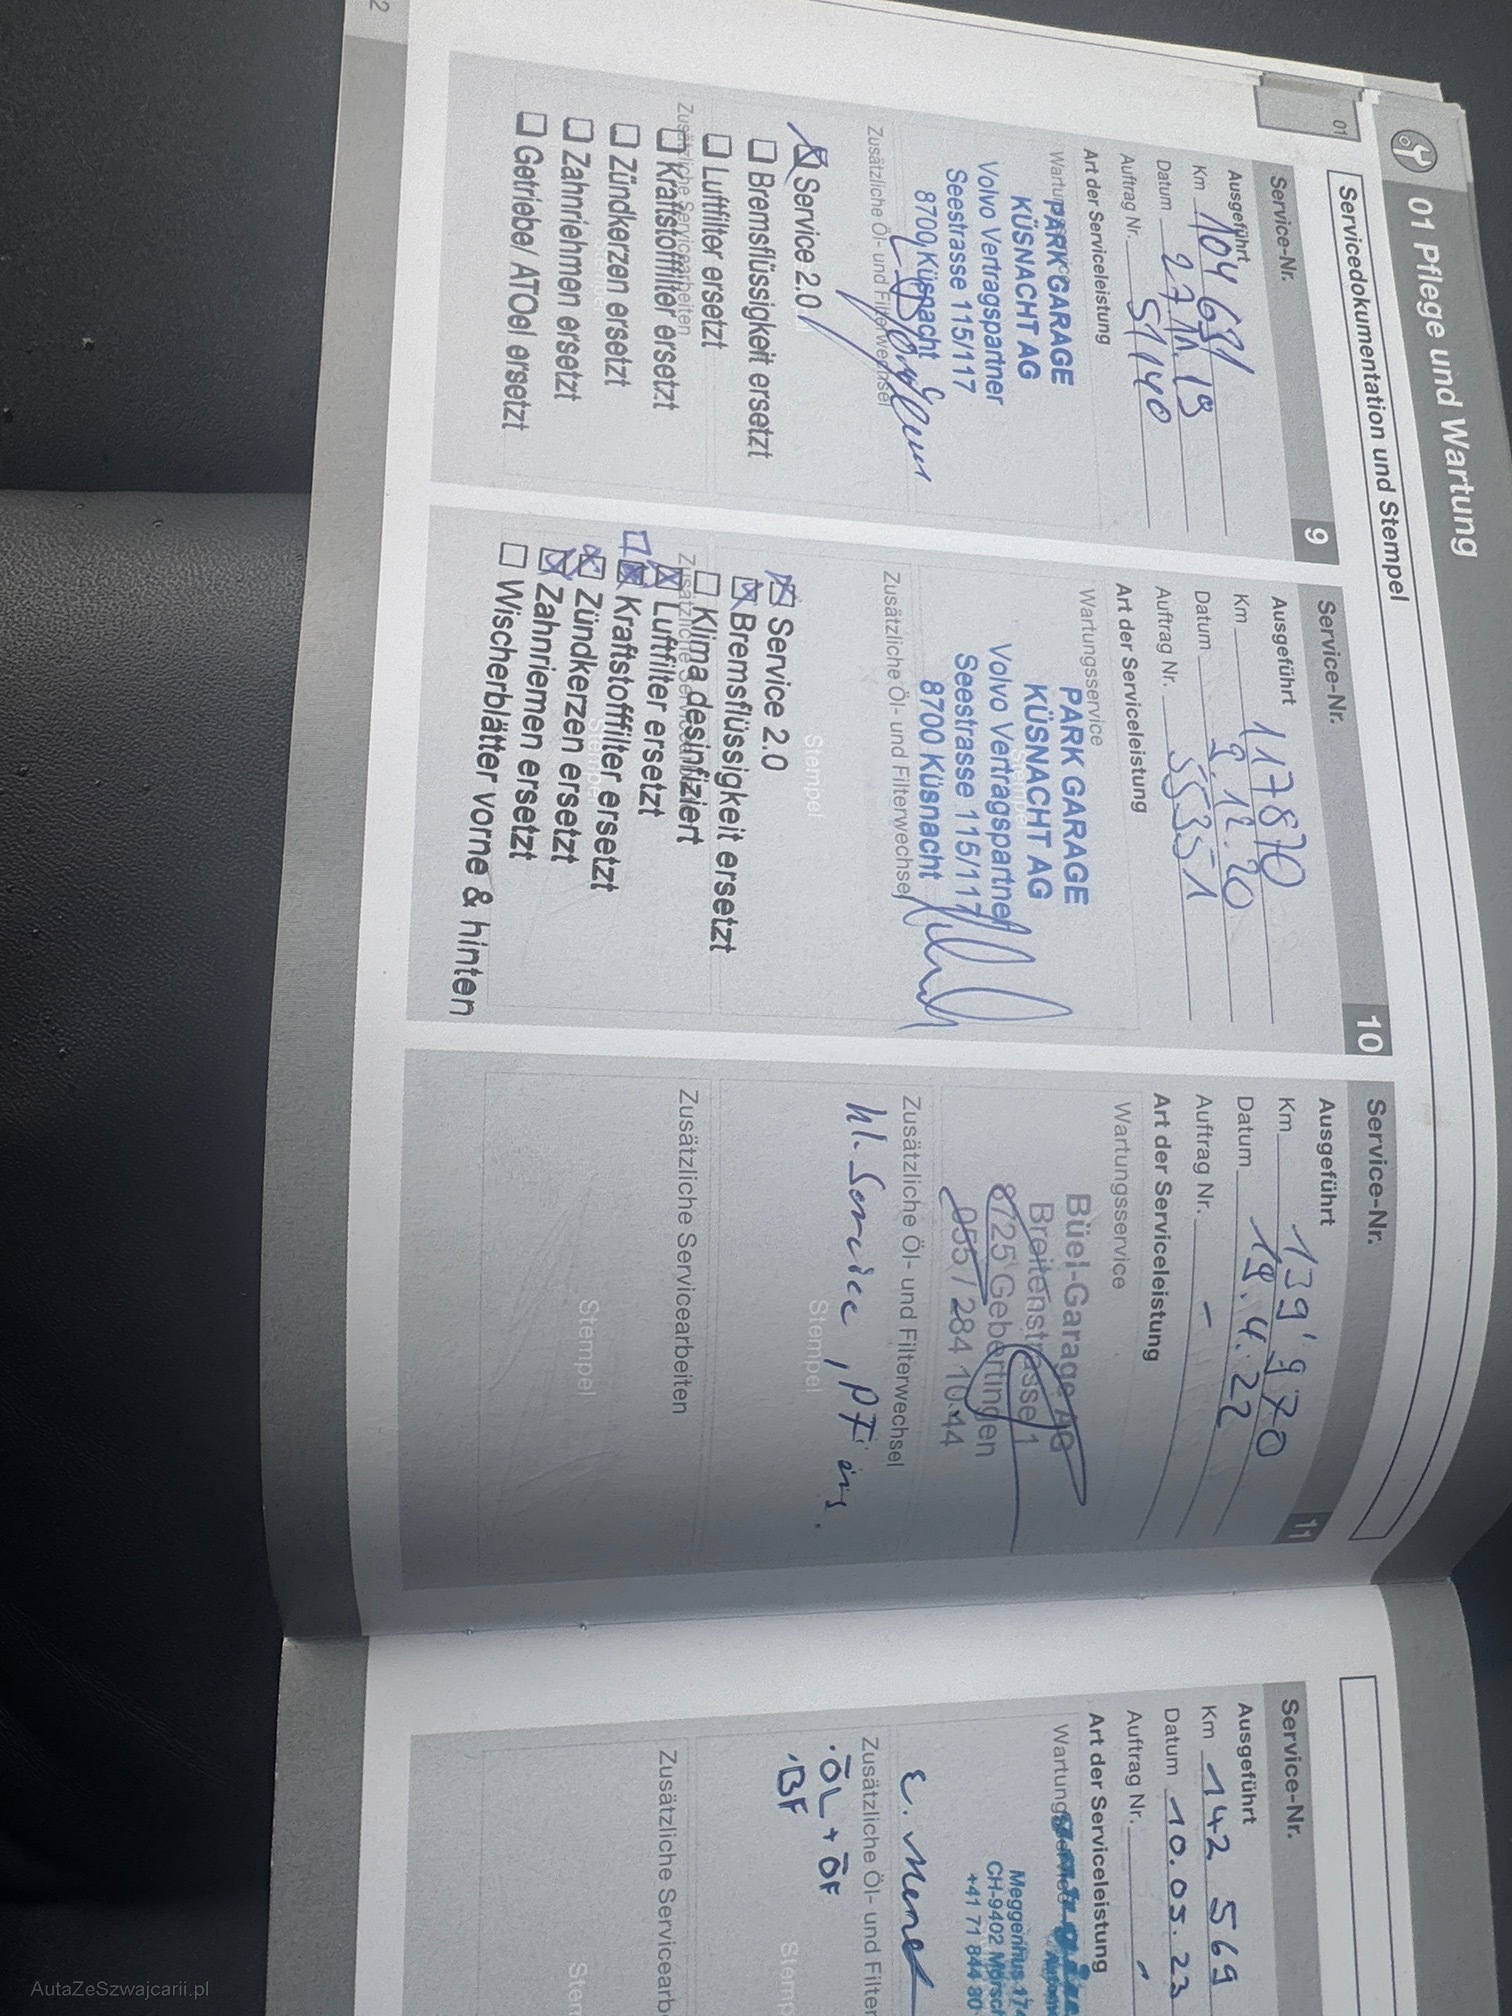 01 Pflege und Wartung
01
Servicedokumentation und Stempel
Service-Nr. 9
Ausgeführt
Km 104 691
Datum 27.11.19
Auftrag Nr. 51140
Art der Serviceleistung
PARK GARAGE
KÜSNACHT AG
Volvo Vertragspartner
Seestrasse 115/117
8700 Küsnacht
Zusätzliche Öl- und Filterwechsel
Service 2.0
Bremsflüssigkeit ersetzt
Luftfilter ersetzt
Zusätzliche Servicearbeiten
Kraftstoffilter ersetzt
Zündkerzen ersetzt
Zahnriehmen ersetzt
Getriebe/ ATOel ersetzt
Service-Nr. 10
Ausgeführt
Km 117870
Datum 9.12.20
Auftrag Nr. 55351
Art der Serviceleistung
Wartungsservice
PARK GARAGE
KÜSNACHT AG
Volvo Vertragspartner
Seestrasse 115/117
8700 Küsnacht
Zusätzliche Öl- und Filterwechsel
Stempel
Service 2.0
Bremsflüssigkeit ersetzt
Klima desinfiziert
Luftfilter ersetzt
Kraftstofffilter ersetzt
Zündkerzen ersetzt
Zahnriemen ersetzt
Wischerblätter vorne & hinten
Service-Nr. 11
Ausgeführt
Km 139'970
Datum 19.4.22
Auftrag Nr. -
Art der Serviceleistung
Wartungsservice
Büel-Garage AG
Breitenstrasse 1
8725 Gebertingen
055 / 284 10 44
Zusätzliche Öl- und Filterwechsel
Stempel
kl. Service, PF
Zusätzliche Servicearbeiten
Stempel
Service-Nr.
Ausgeführt
Km 142 569
Datum 10.05.23
Auftrag Nr. -
Art der Serviceleistung
Meggenhus 17
CH-9402
+41 71 844 80
Zusätzliche Öl- und Filter
· ÖL + ÖF
· BF
Stemp
Zusätzliche Servicearb
Stem
2
AutaZeSzwajcarii.pl